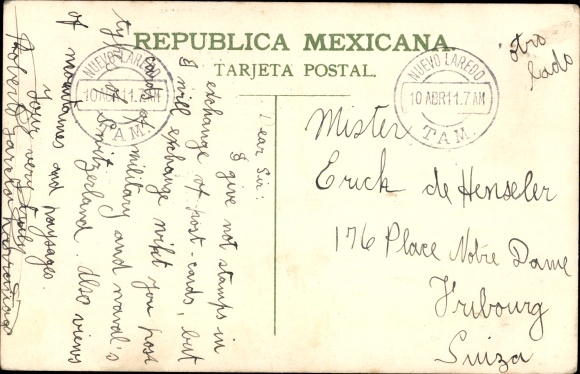 REPUBLICA MEXICANA.
TARJETA POSTAL.
otro
lado
NUEVO LAREDO
10 ABR 11. 7 AM
TAM.
NUEVO LAREDO
10 ABR 11. 7 AM
TAM.
Mister
Erick de Henseler
176 Place Notre Dame
Fribourg
Suiza
Dear Sir:
I give not stamps in
exchange of post-cards, but
I will exchange whit you post
cards of military and naval's
type of Switzerland. Also views
of mountaines and paysages.
Your very truly